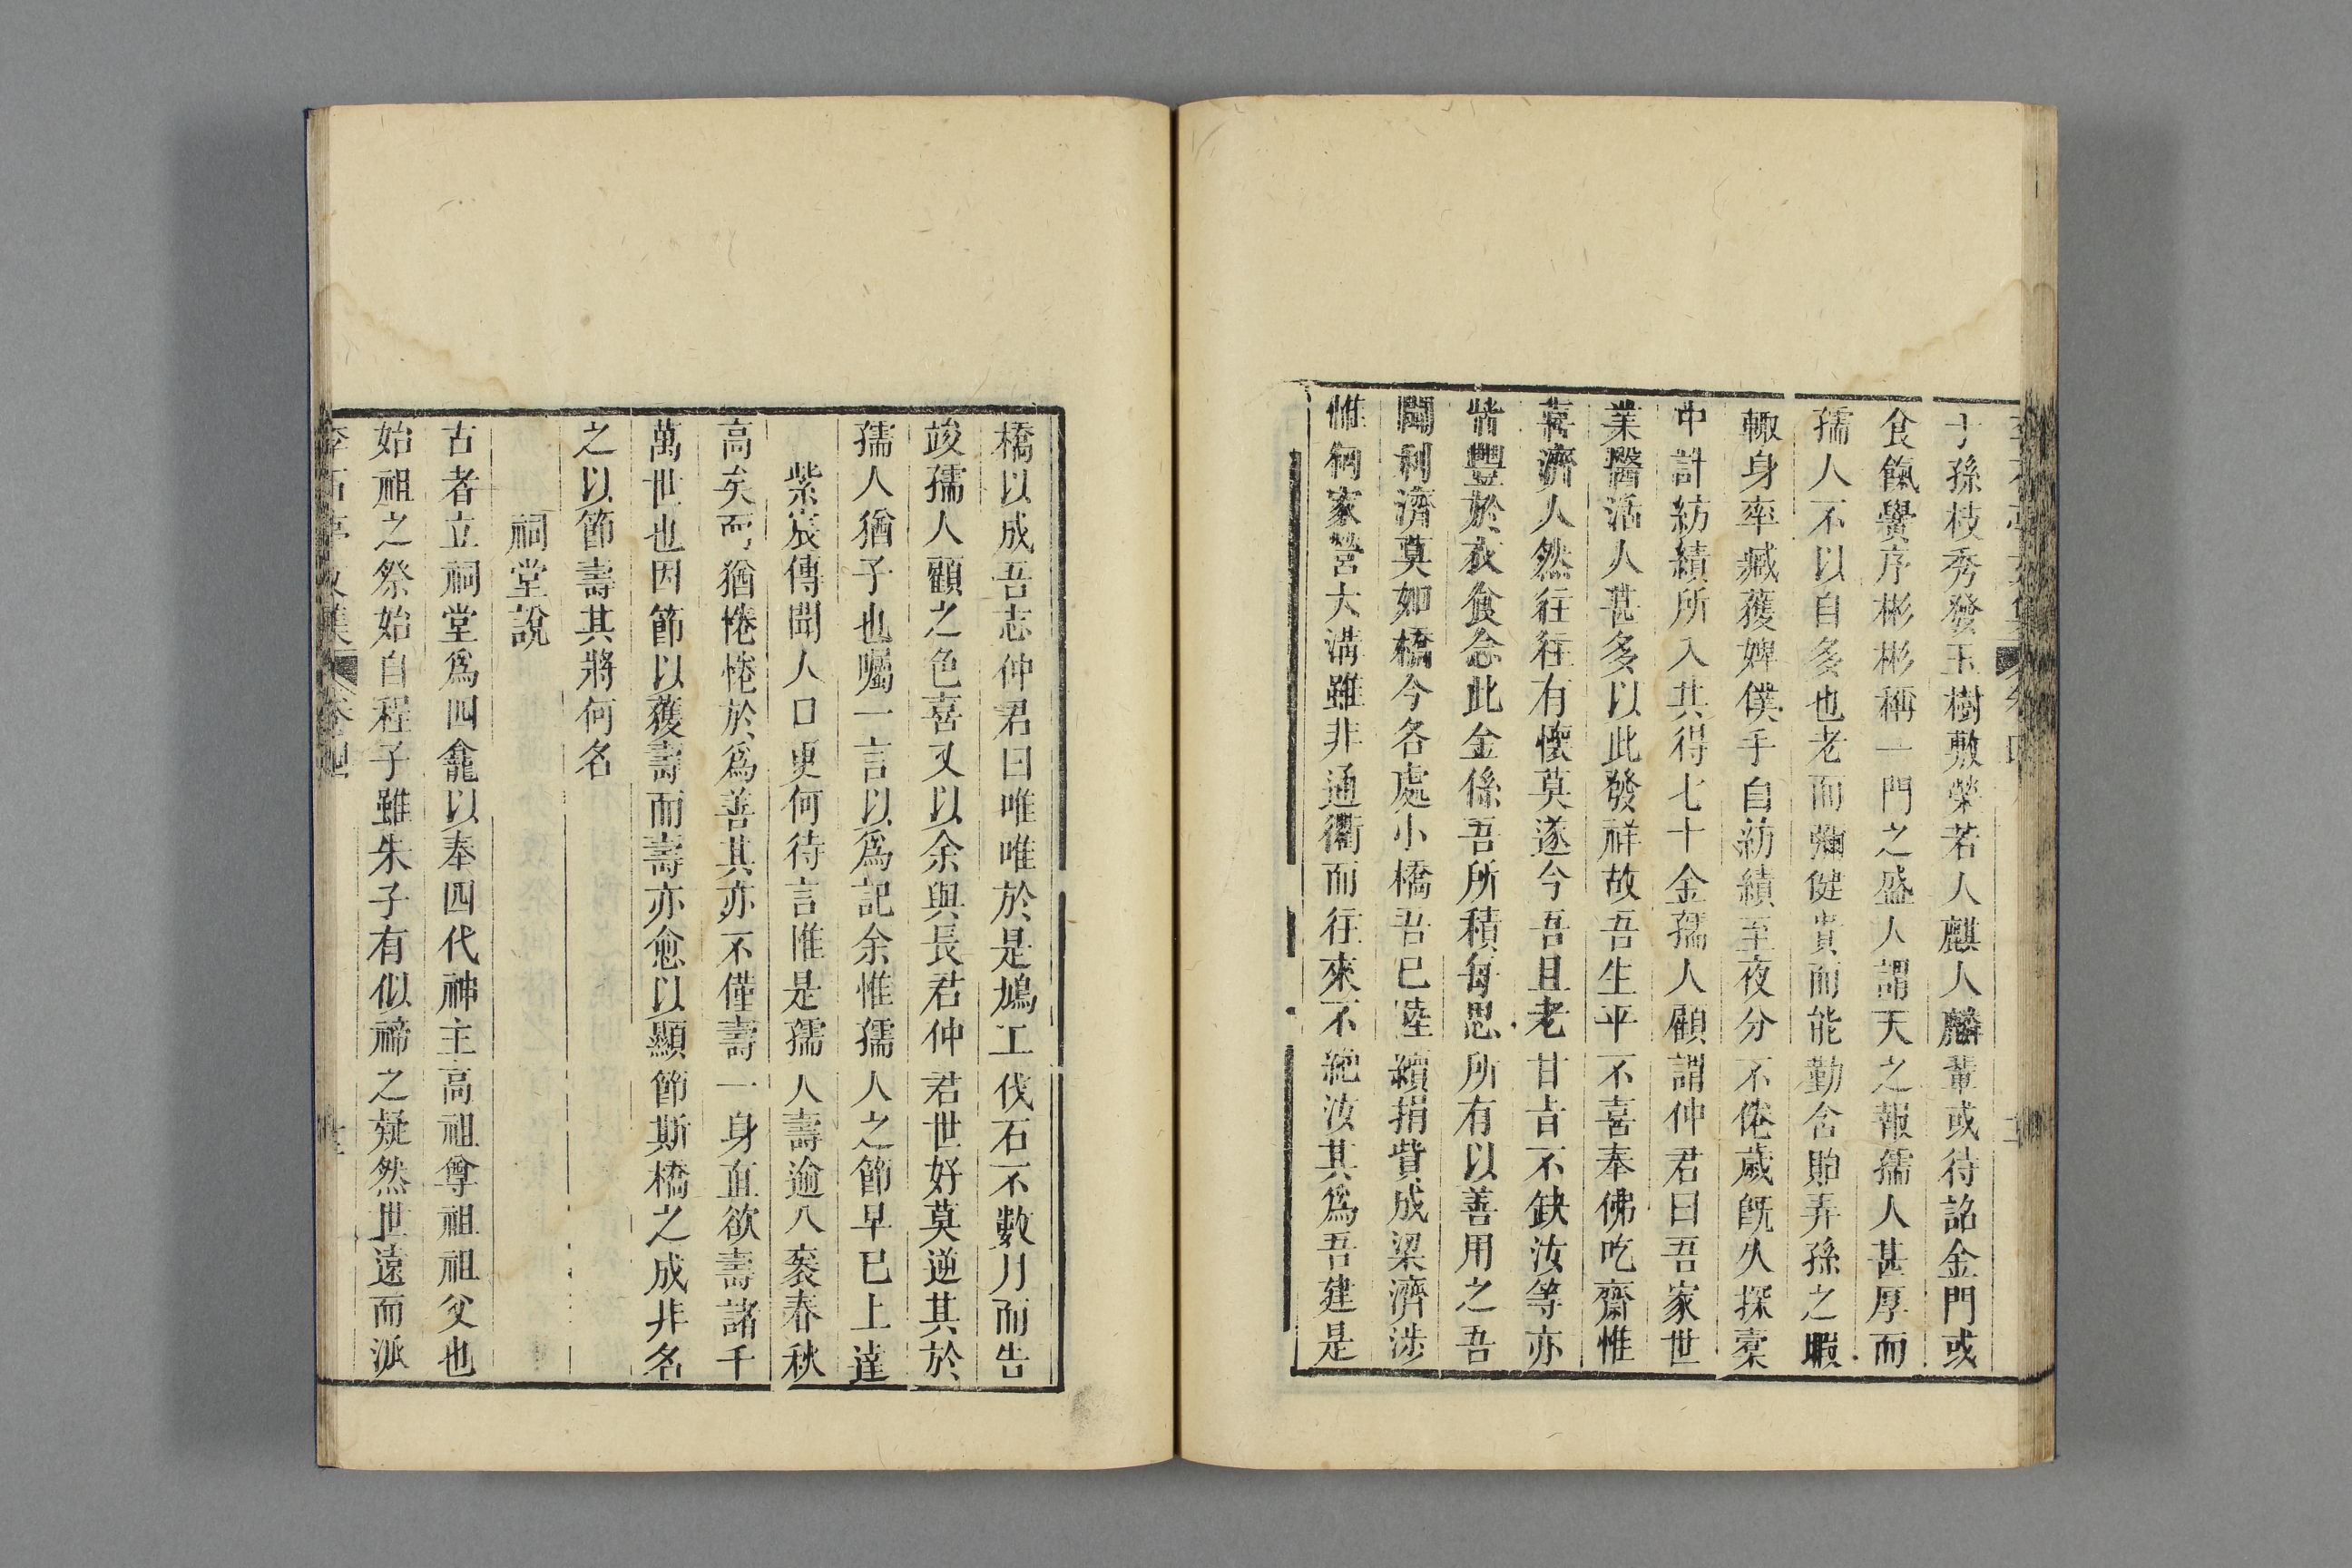 子孫枝秀發玉樹敷榮若人麒人麟輩或待詔金門或
食餼黌序彬彬稱一門之盛人謂天之報孺人甚厚而
孺人不以自多也老而彌健貴而能勤含貽弄孫之暇
輙身率臧獲婢僕手自紡績至夜分不倦歲旣久探橐
中計紡績所入共得七十金孺人顧謂仲君曰吾家世
業醫活人甚多以此發祥故吾生平不喜奉佛吃齋惟
喜濟人然往往有懷莫遂今吾且老甘旨不缺汝等亦
皆豐於衣食念此金係吾所積每思所有以善用之吾
聞利濟莫如橋今各處小橋吾已陸續捐貲成梁濟涉
惟何家營大溝雖非通衢而往來不絶汝其爲吾建是
橋以成吾志仲君曰唯唯於是鳩工伐石不數月而告
竣孺人顧之色喜又以余與長君仲君世好莫逆其於
孺人猶子也囑一言以爲記余惟孺人之節早已上達
紫宸傳聞人口更何待言惟是孺人壽逾八袠春秋
高矣而猶惓惓於爲善其亦不僅壽一身直欲壽諸千
萬世也因節以獲壽而壽亦愈以顯節斯橋之成非名
之以節壽其將何名
祠堂說
古者立祠堂爲四龕以奉四代神主高祖尊祖祖父也
始祖之祭始自程子雖朱子有似禘之疑然世遠而派